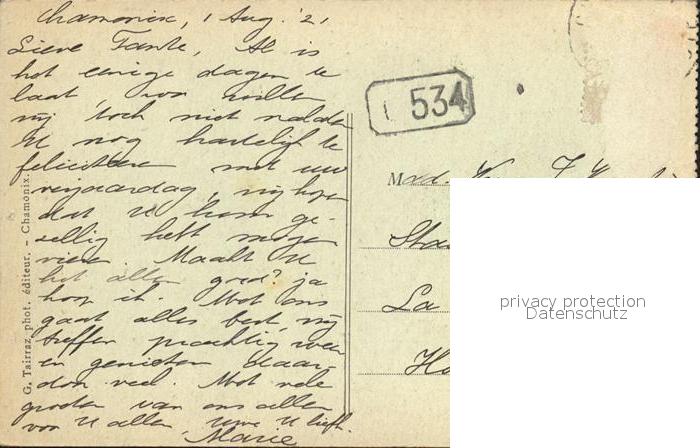 Chamonix, 1 Aug. '21
Lieve Tante, Al is
het eenige dagen te
laat toch niet nalaten
U nog hartelijk te
feliciteeren met uw
verjaardag, wij hopen
dat U hem ge-
zellig hebt mogen
vieren. Maakt U
het allen goed? ja
hoop ik. Met ons
gaat alles best, wij
treffen prachtig weer
en genieten daar
dan veel. Met vele
groeten van ons allen
voor U allen, uwe U liefh.
Marie
534
Mad.
Sta
La
Ha
G. Tairraz, phot. éditeur. - Chamonix.
privacy protection
Datenschutz